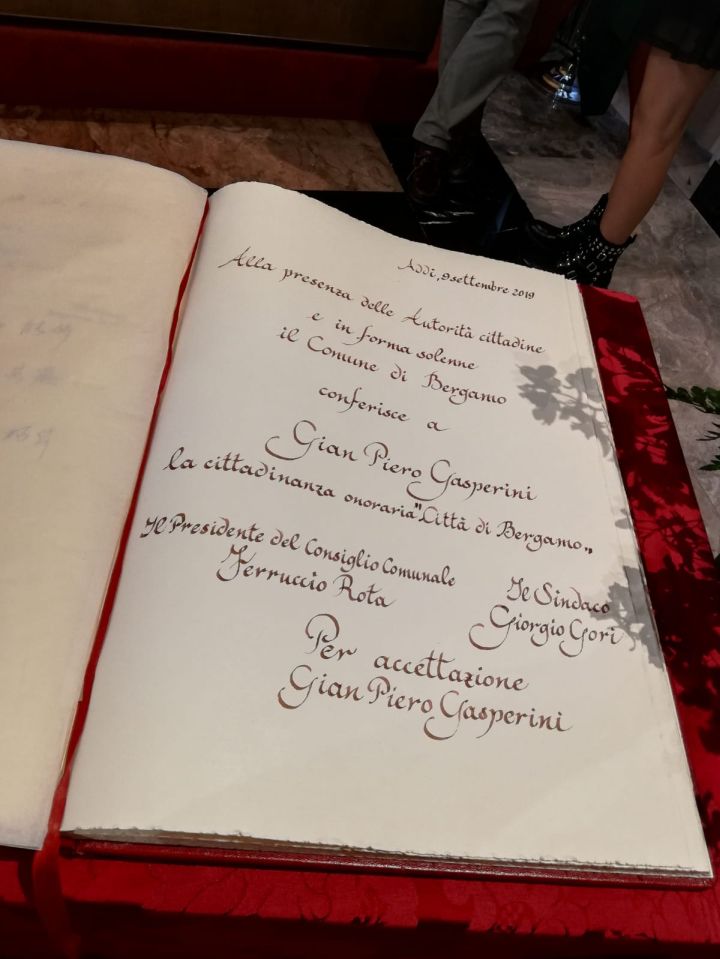 Addì, 9 settembre 2019
Alla presenza delle Autorità cittadine
e in forma solenne
il Comune di Bergamo
conferisce a
Gian Piero Gasperini
la cittadinanza onoraria "Città di Bergamo„
Il Presidente del Consiglio Comunale
Ferruccio Rota
Il Sindaco
Giorgio Gori
Per accettazione
Gian Piero Gasperini